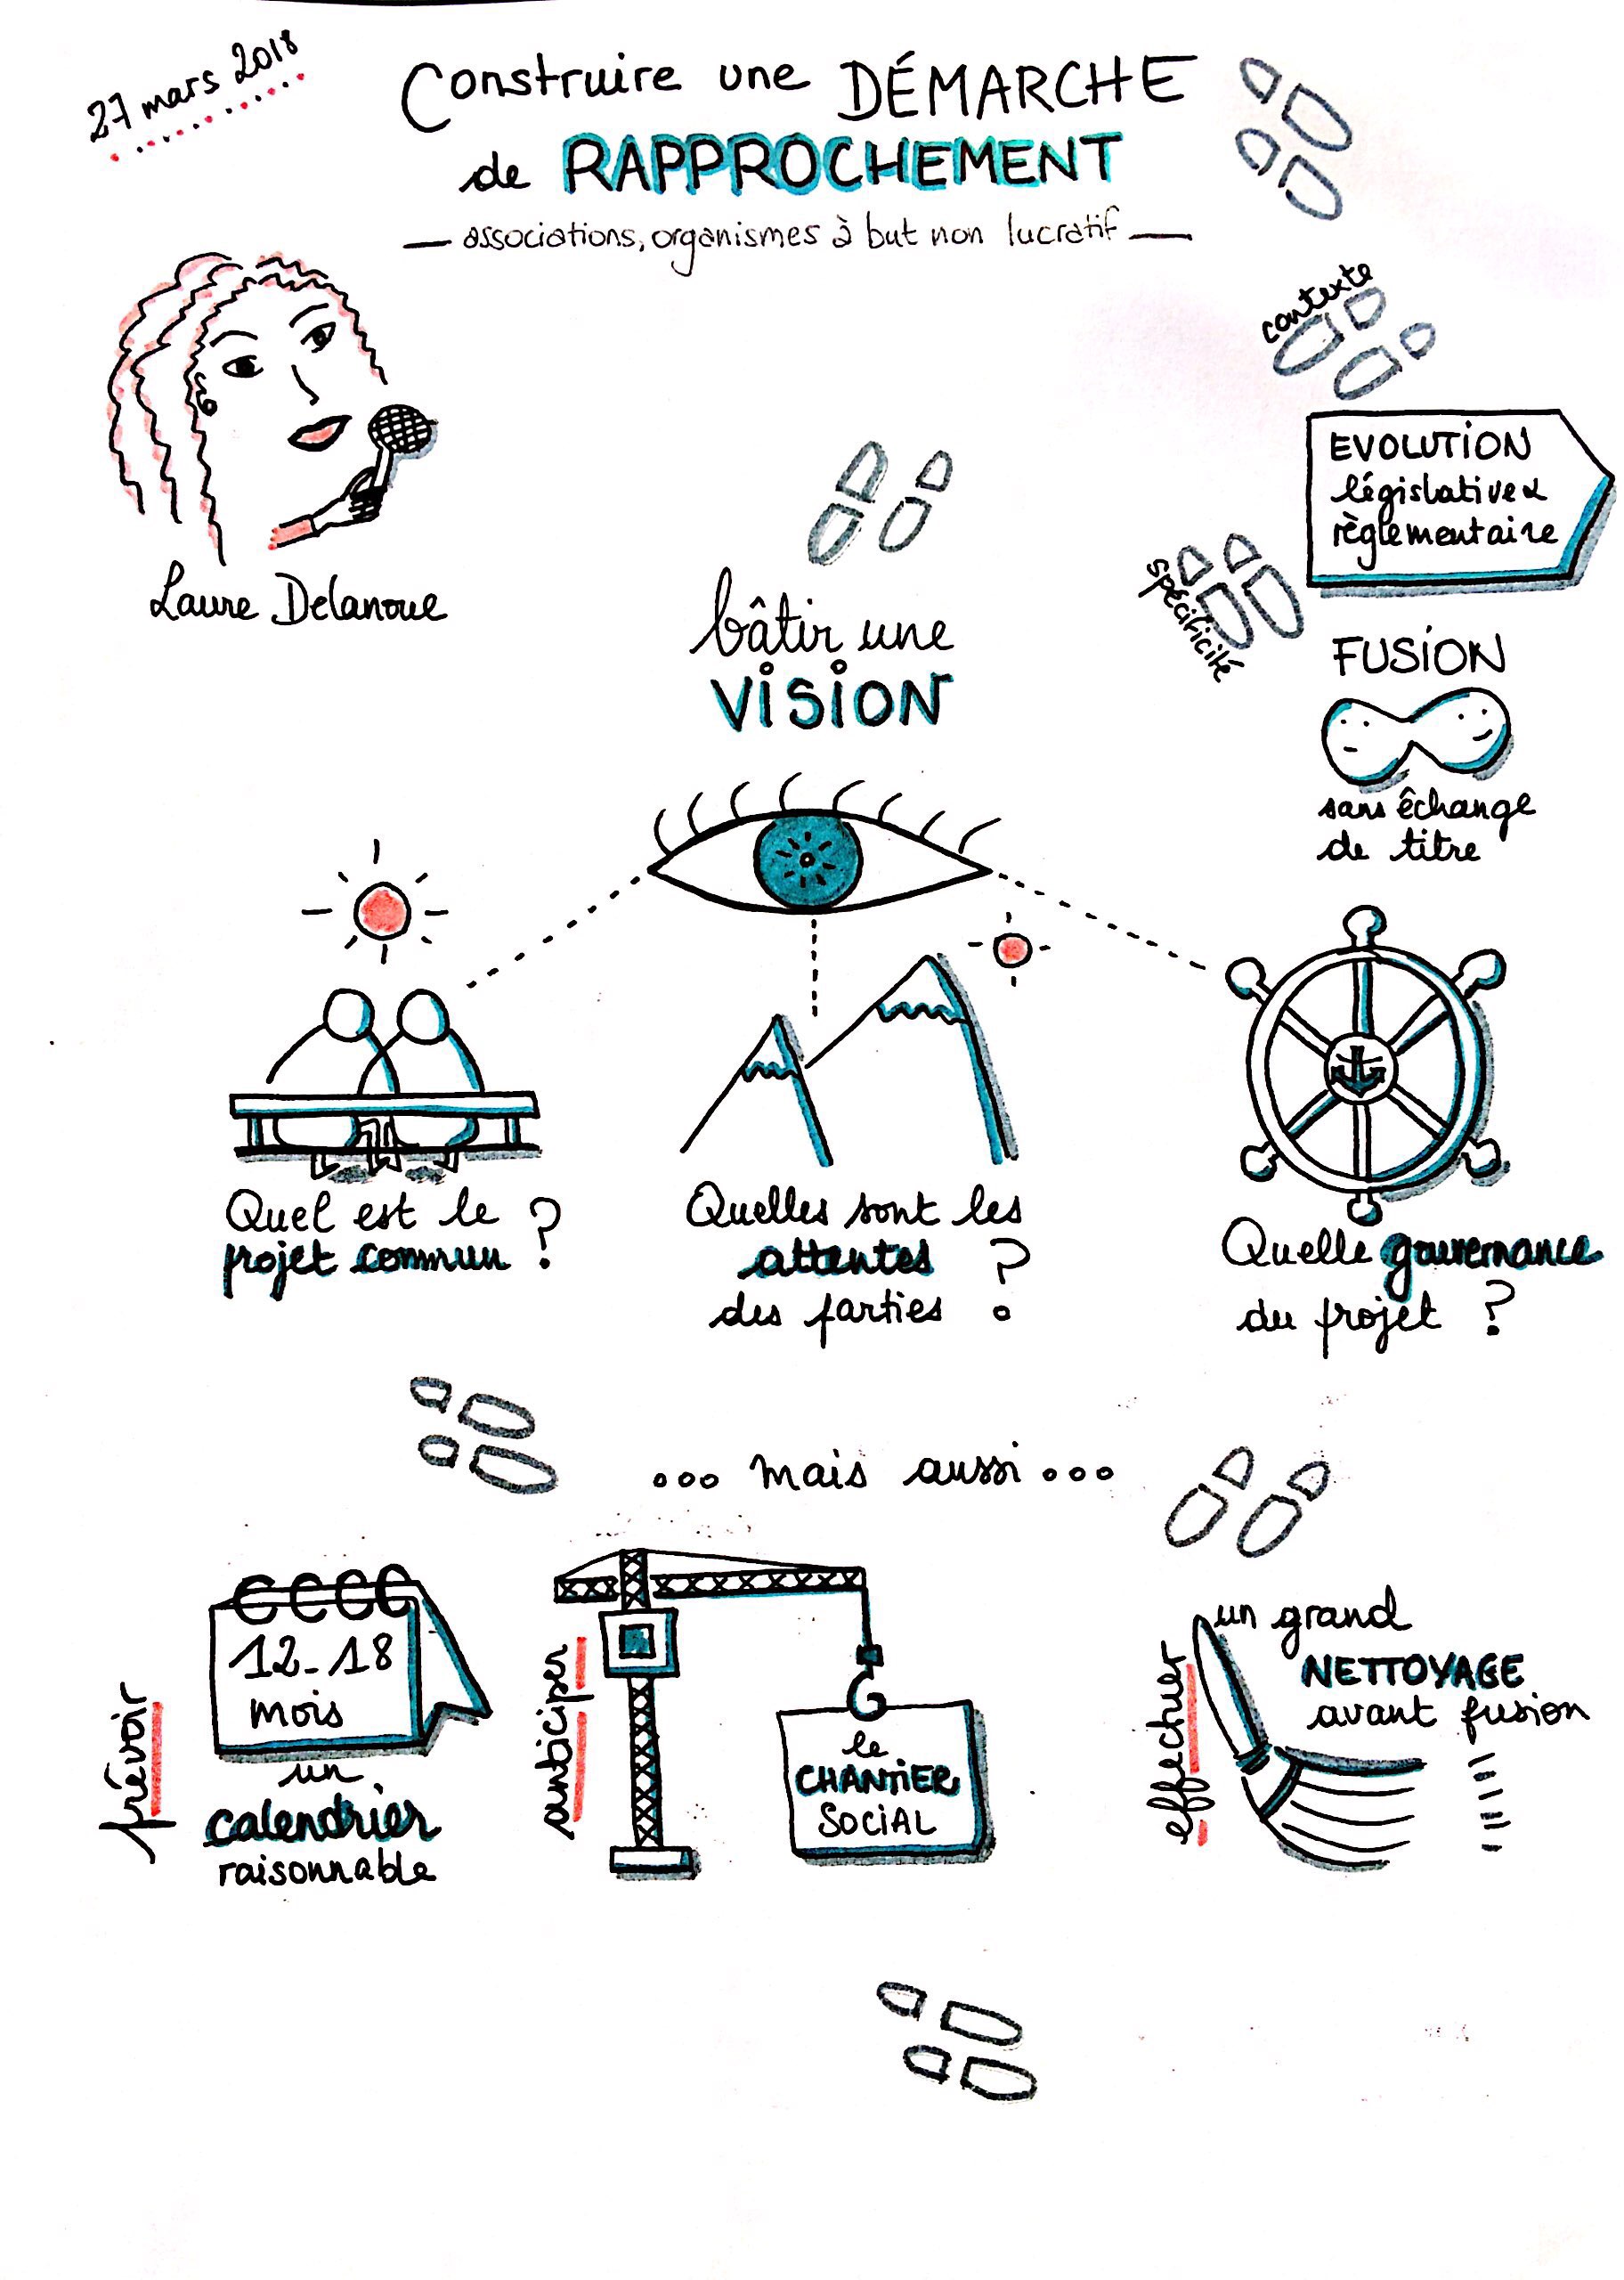 27 mars 2018
Construire une DÉMARCHE
de RAPPROCHEMENT
— associations, organismes à but non lucratif —
Laure Delanoue
contexte
EVOLUTION
législative &
règlementaire
spécificité
FUSION
sans échange
de titre
bâtir une
VISION
Quel est le
projet commun ?
Quelles sont les
attentes ?
des parties
Quelle gouvernance
du projet ?
... mais aussi ...
prévoir
12-18
mois
un
calendrier
raisonnable
anticiper
le
CHANTIER
SOCIAL
effectuer
un grand
NETTOYAGE
avant fusion